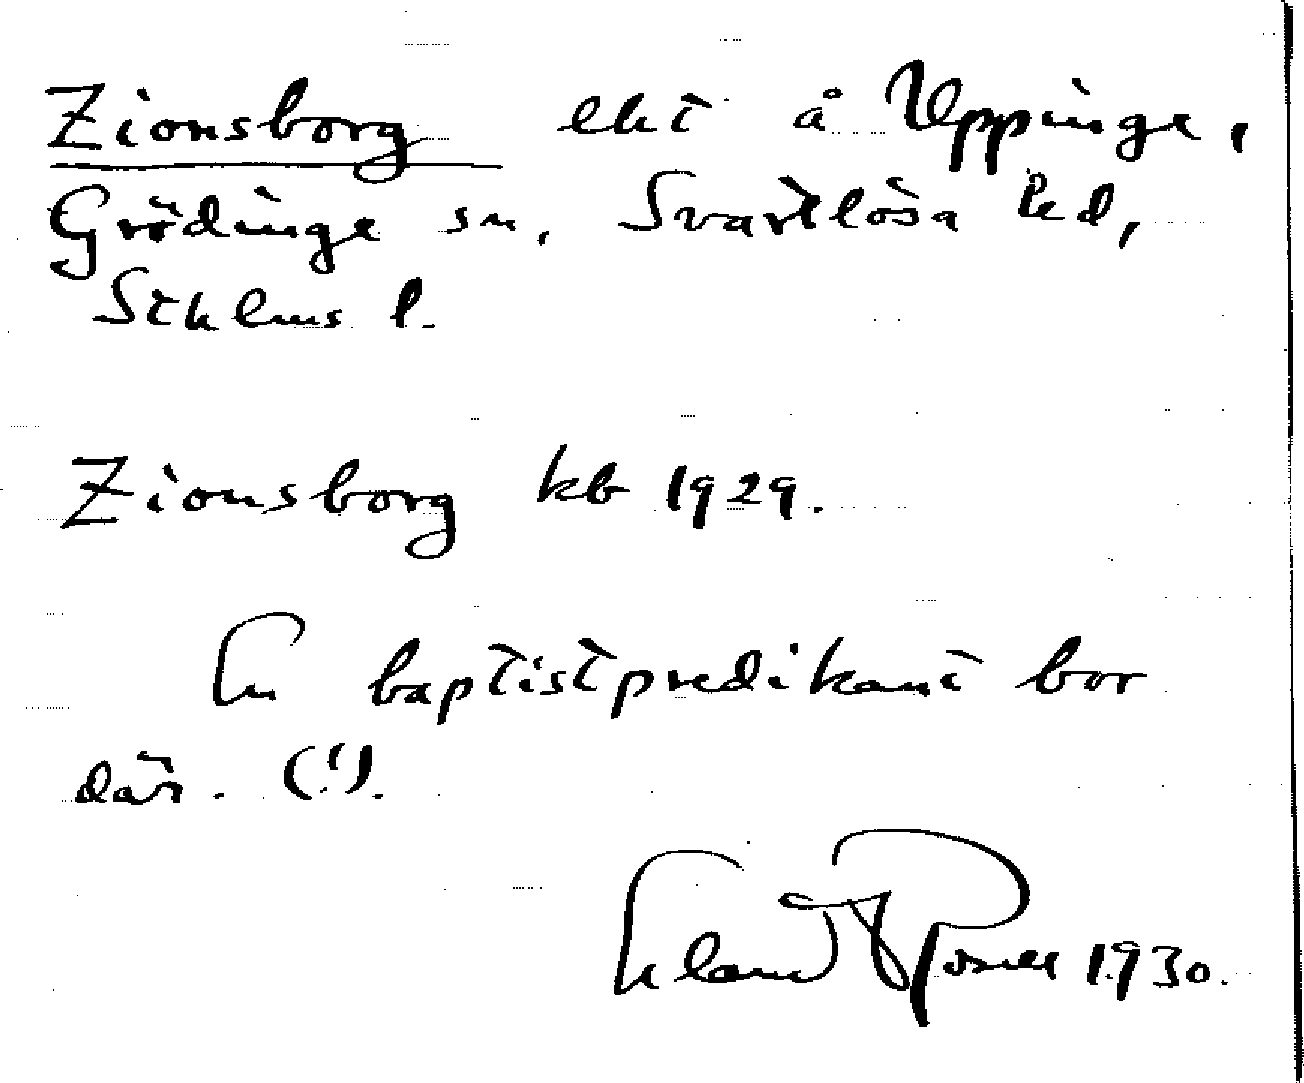 Zionsborg eht å Uppinge,
Grödinge sn, Svartlösa hd,
Sthlms l.
Zionsborg kb 1929.
En baptistpredikant bor
där. (!).
Erland Rosell 1930.